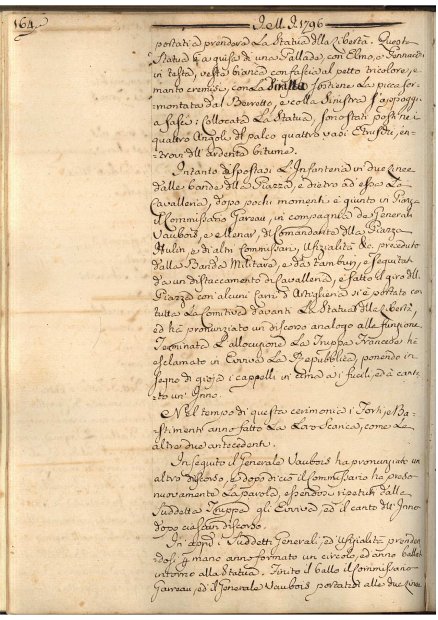 164.
J. M. J. 1796
portati a prendere La Statua dlla Libertà. Questa
Statua à a guisa di una Pallade, con Elmo, e Pennacchi
in testa, veste bianca con fascia al petto tricolore, e
manto cremisi, con La Diritta sostiene La picca sor-
montata dal Berretto, e colla Sinistra s'appoggia
a fasci: Collocata La Statua, sono stati posti ne i
quattro Angoli dl palco quattro vasi Etruschi, en-
trovi dll' ardente bitume.
Intanto dispostasi L'Infanteria in due Linee
dalle bande dlla Piazza, e dietro ad esse La
Cavalleria, dopo pochi momenti è giunto in Piazza
il Commissario Garreau, in compagnia de Generali
Vaubois, e Menar, dl Comandante dlla Piazza
Hulin e di altri Commissari, Ufizialità &c. preceduto
dalla Banda Militare, e da tamburi, e seguitato
da un distaccamento di Cavalleria, e fatto il giro dlla
Piazza con alcuni Carri d'Artiglieria si è portato con
tutta La Comitiva davanti La Statua dlla Libertà,
ed hà pronunziato un discorso analogo alla funzione.
Terminata L'allocuzione La Truppa Francese hà
esclamato in Evviva La Repubblica, ponendo in
segno di gioja i cappelli in cima a i fucili, ed à canta-
to un' Inno.
Nel tempo di questa cerimonia i Forti, e Ba-
stimenti anno fatto La Loro Scarica, come Le
altre due antecedenti.
In seguito il Generale Vaubois ha pronunziato un
altro discorso, e dopo di ciò il Commissario ha preso
nuovamente La parola, essendosi ripetuti dalla
Suddetta Truppa gli Evviva, ed il canto dll' Inno
dopo ciascun discorso.
In i Suddetti Generali, ed Ufizialità prenden-
dosi p mano anno formato un circolo, ed anno ballato
intorno alla Statua. Finito il ballo il Commissario
Garreau, ed il Generale Vaubois portatisi alle due Linee